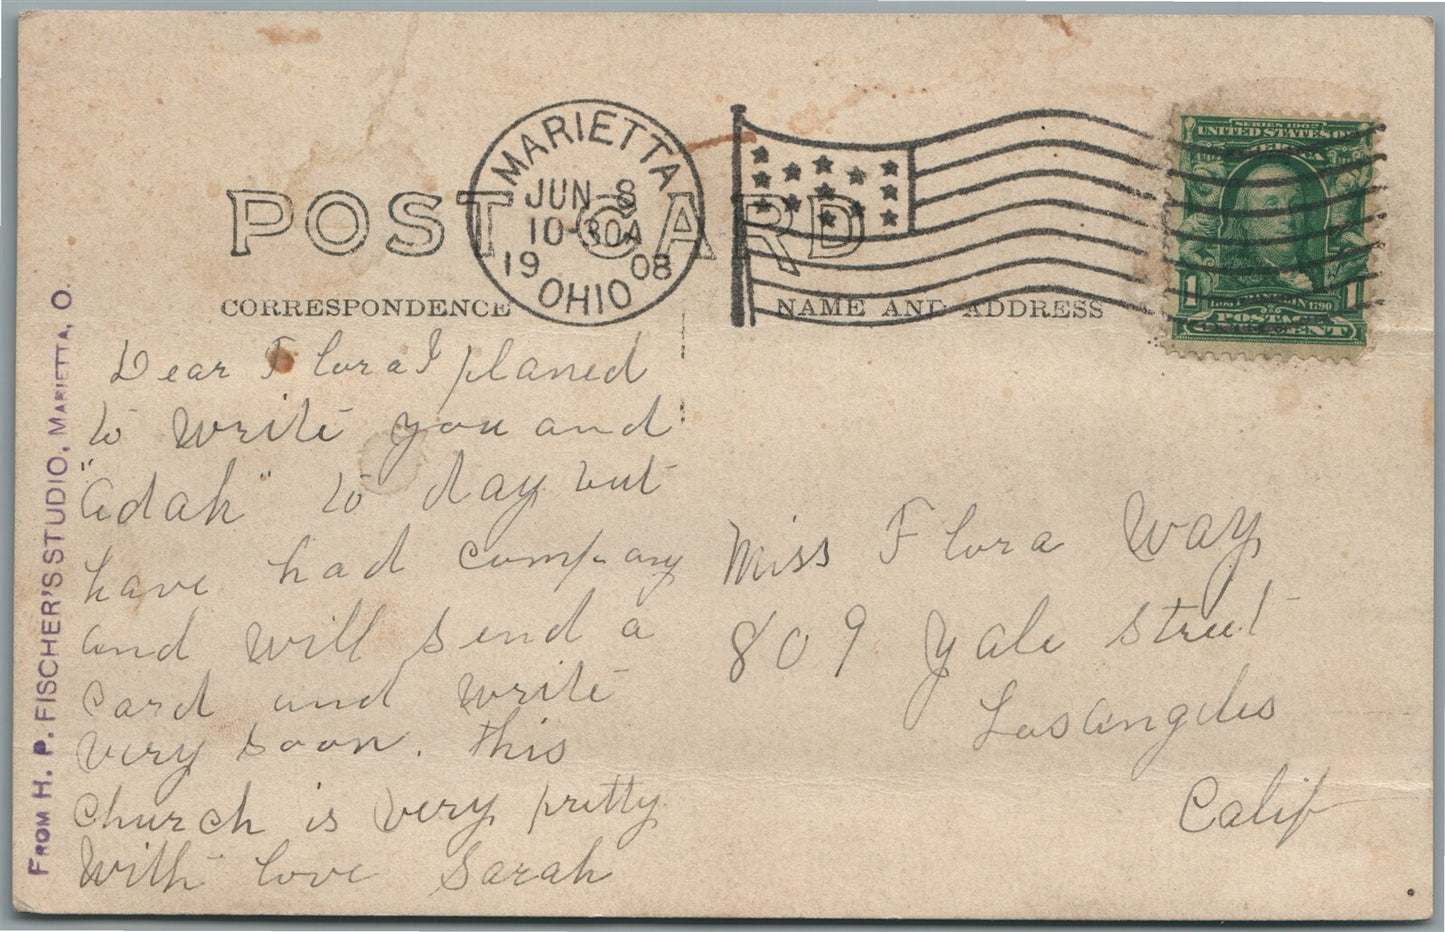 MARIETTA
JUN 8
10-30A
1908
OHIO
SERIES 1902
UNITED STATES OF
AMERICA
1 1
FRANKLIN 1790
POSTAGE
POST CARD
CORRESPONDENCE
NAME AND ADDRESS
FROM H. P. FISCHER'S STUDIO, MARIETTA, O.
Dear Flora I planed
to write you and
"Adah" to day but
have had company
and will send a
card and write
very soon. this
church is very pretty
With love Sarah
Miss Flora Way
809 Yale Street
Los Angeles
Calif